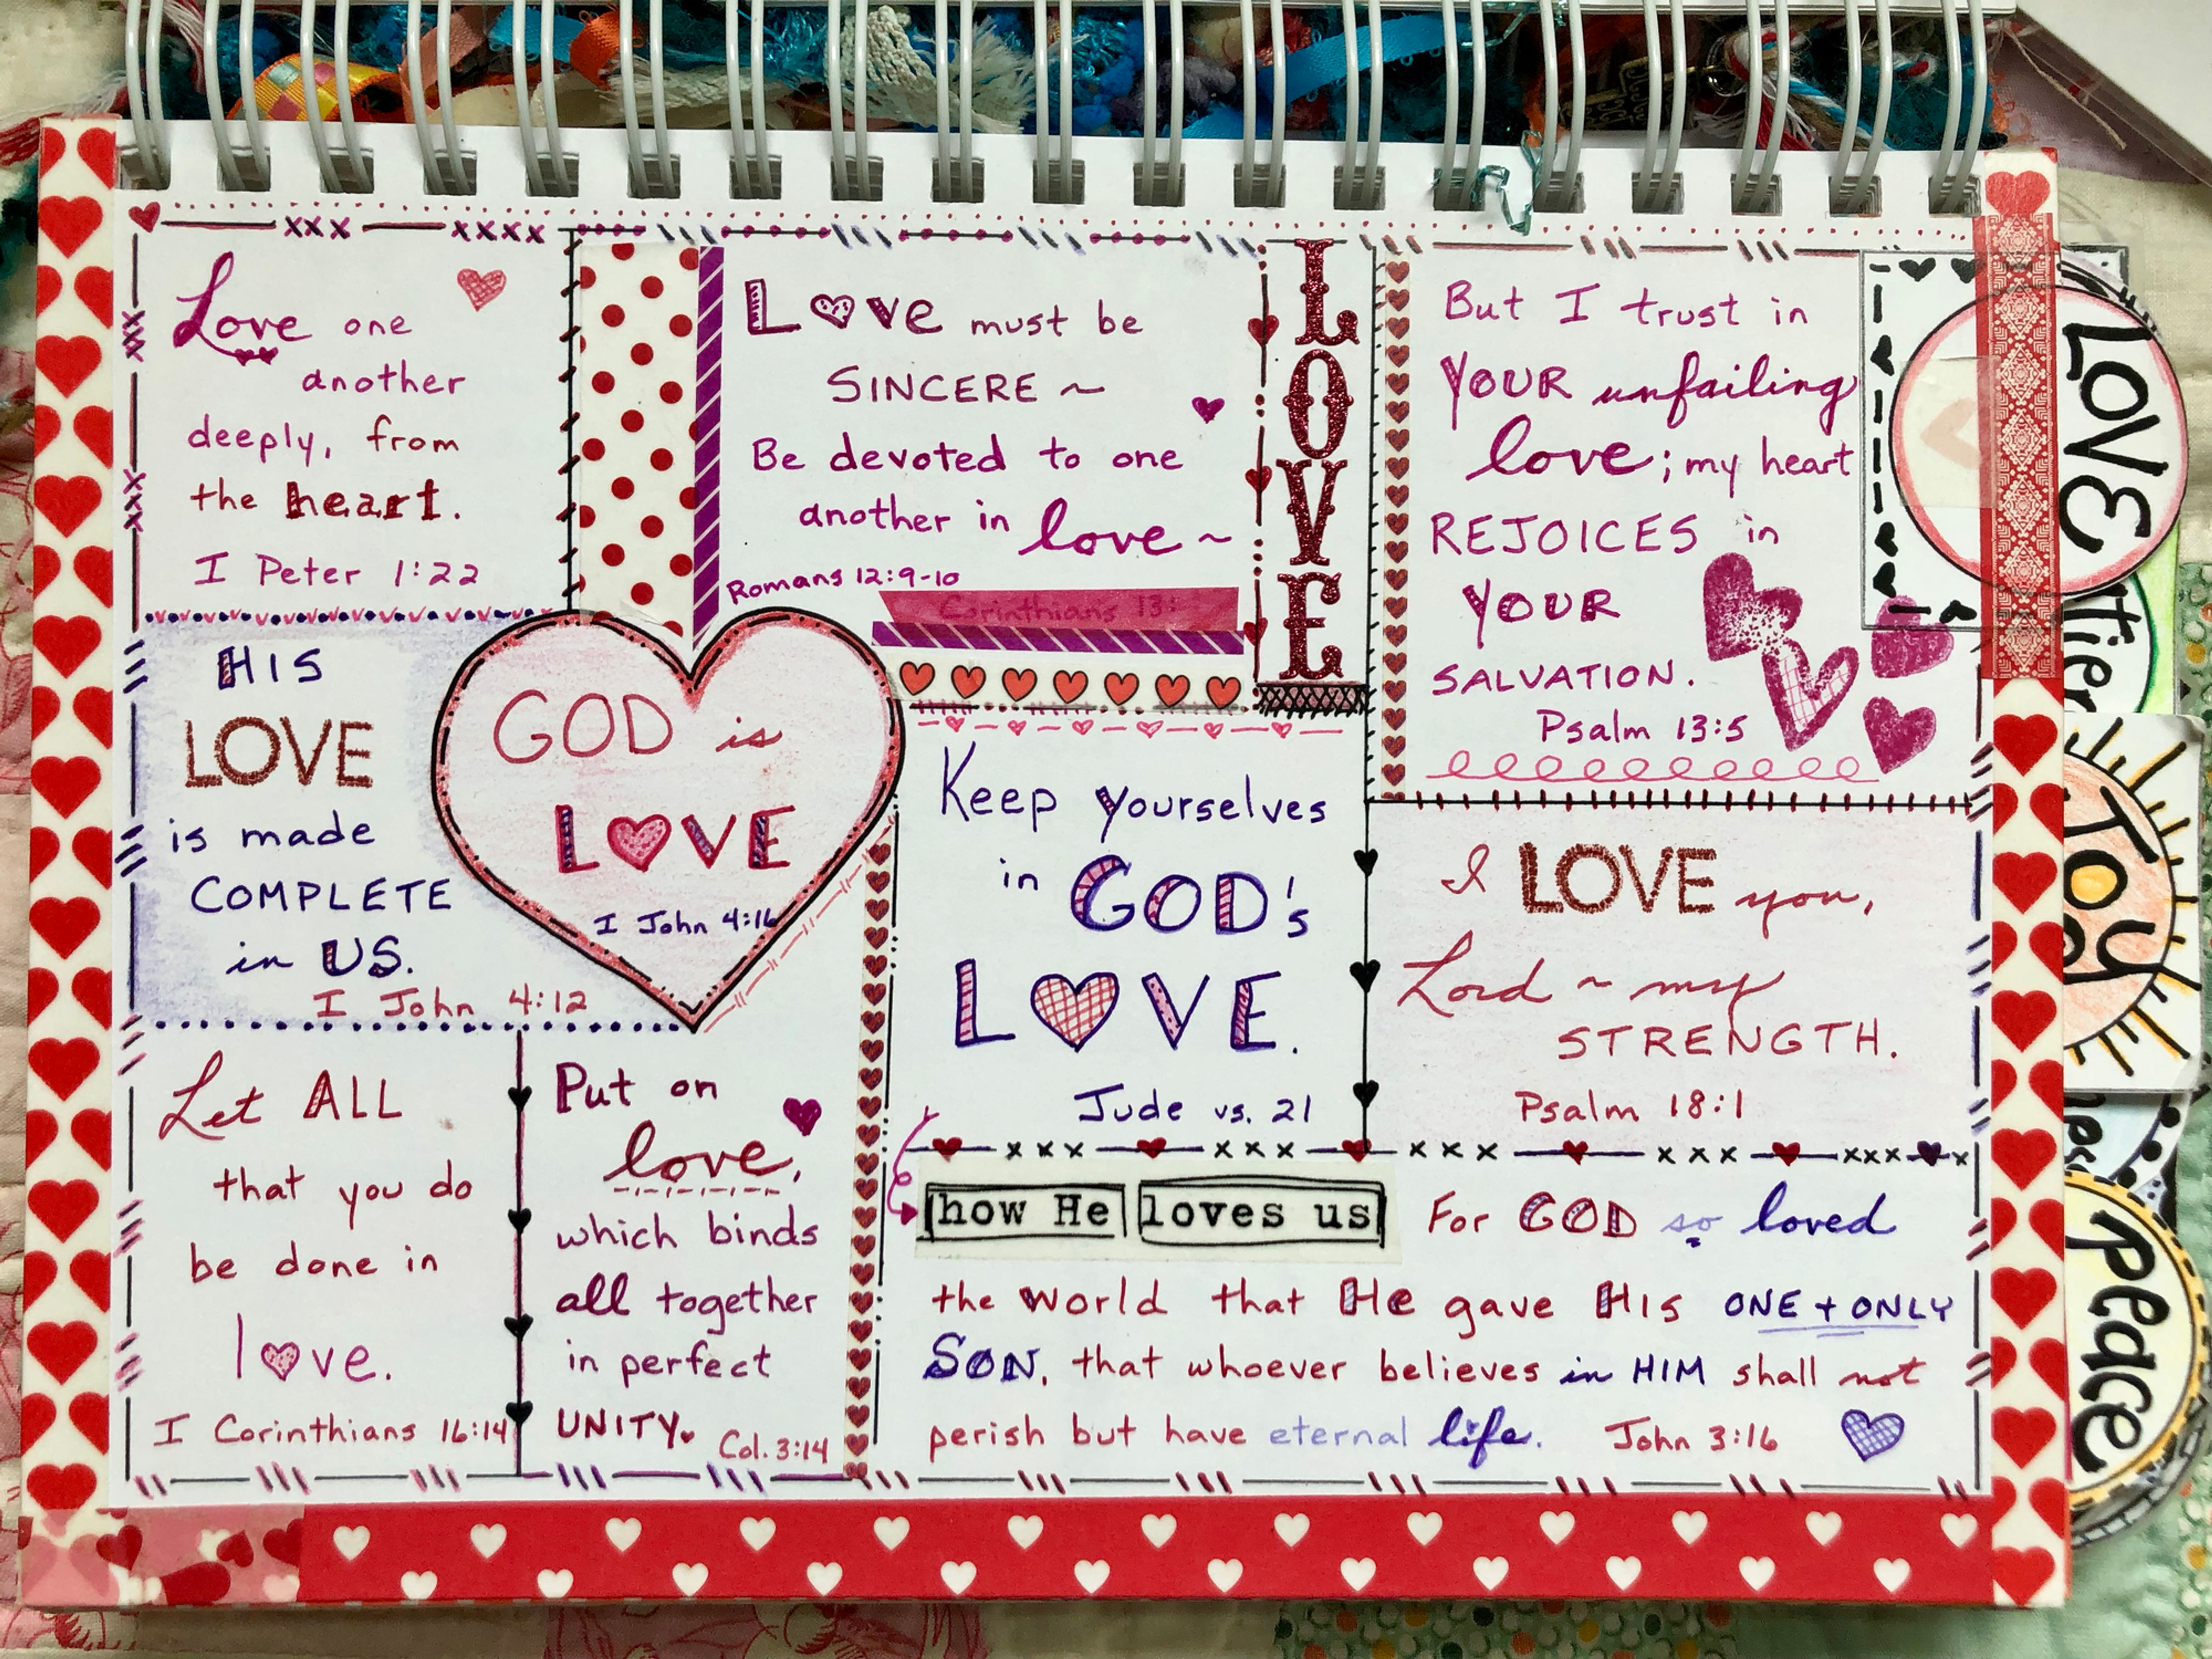 Love one
another
deeply, from
the heart.
I Peter 1:22
Love must be
SINCERE ~
Be devoted to one
another in love ~
Romans 12:9-10
Corinthians 13:
LOVE
But I trust in
YOUR unfailing
love; my heart
REJOICES in
YOUR
SALVATION.
Psalm 13:5
HIS
LOVE
is made
COMPLETE
in US.
I John 4:12
GOD is
LOVE
I John 4:16
Keep yourselves
in GOD's
LOVE.
Jude vs. 21
I LOVE you,
Lord ~ my
STRENGTH.
Psalm 18:1
Let ALL
that you do
be done in
love.
I Corinthians 16:14
Put on
love,
which binds
all together
in perfect
UNITY.
Col. 3:14
how He loves us
For GOD so loved
the world that He gave His ONE + ONLY
SON, that whoever believes in HIM shall not
perish but have eternal life. John 3:16
LOVE
Joy
Peace